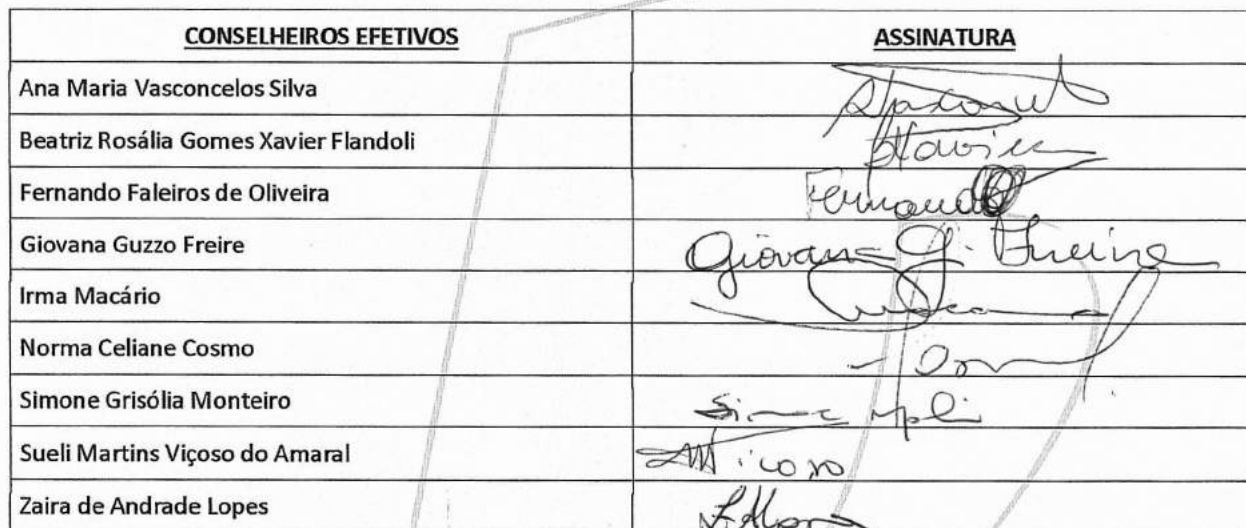 CONSELHEIROS EFETIVOS ASSINATURA
Ana Maria Vasconcelos Silva
Beatriz Rosália Gomes Xavier Flandoli
Fernando Faleiros de Oliveira Fernando
Giovana Guzzo Freire Giovana G. Freire
Irma Macário
Norma Celiane Cosmo
Simone Grisólia Monteiro
Sueli Martins Viçoso do Amaral
Zaira de Andrade Lopes